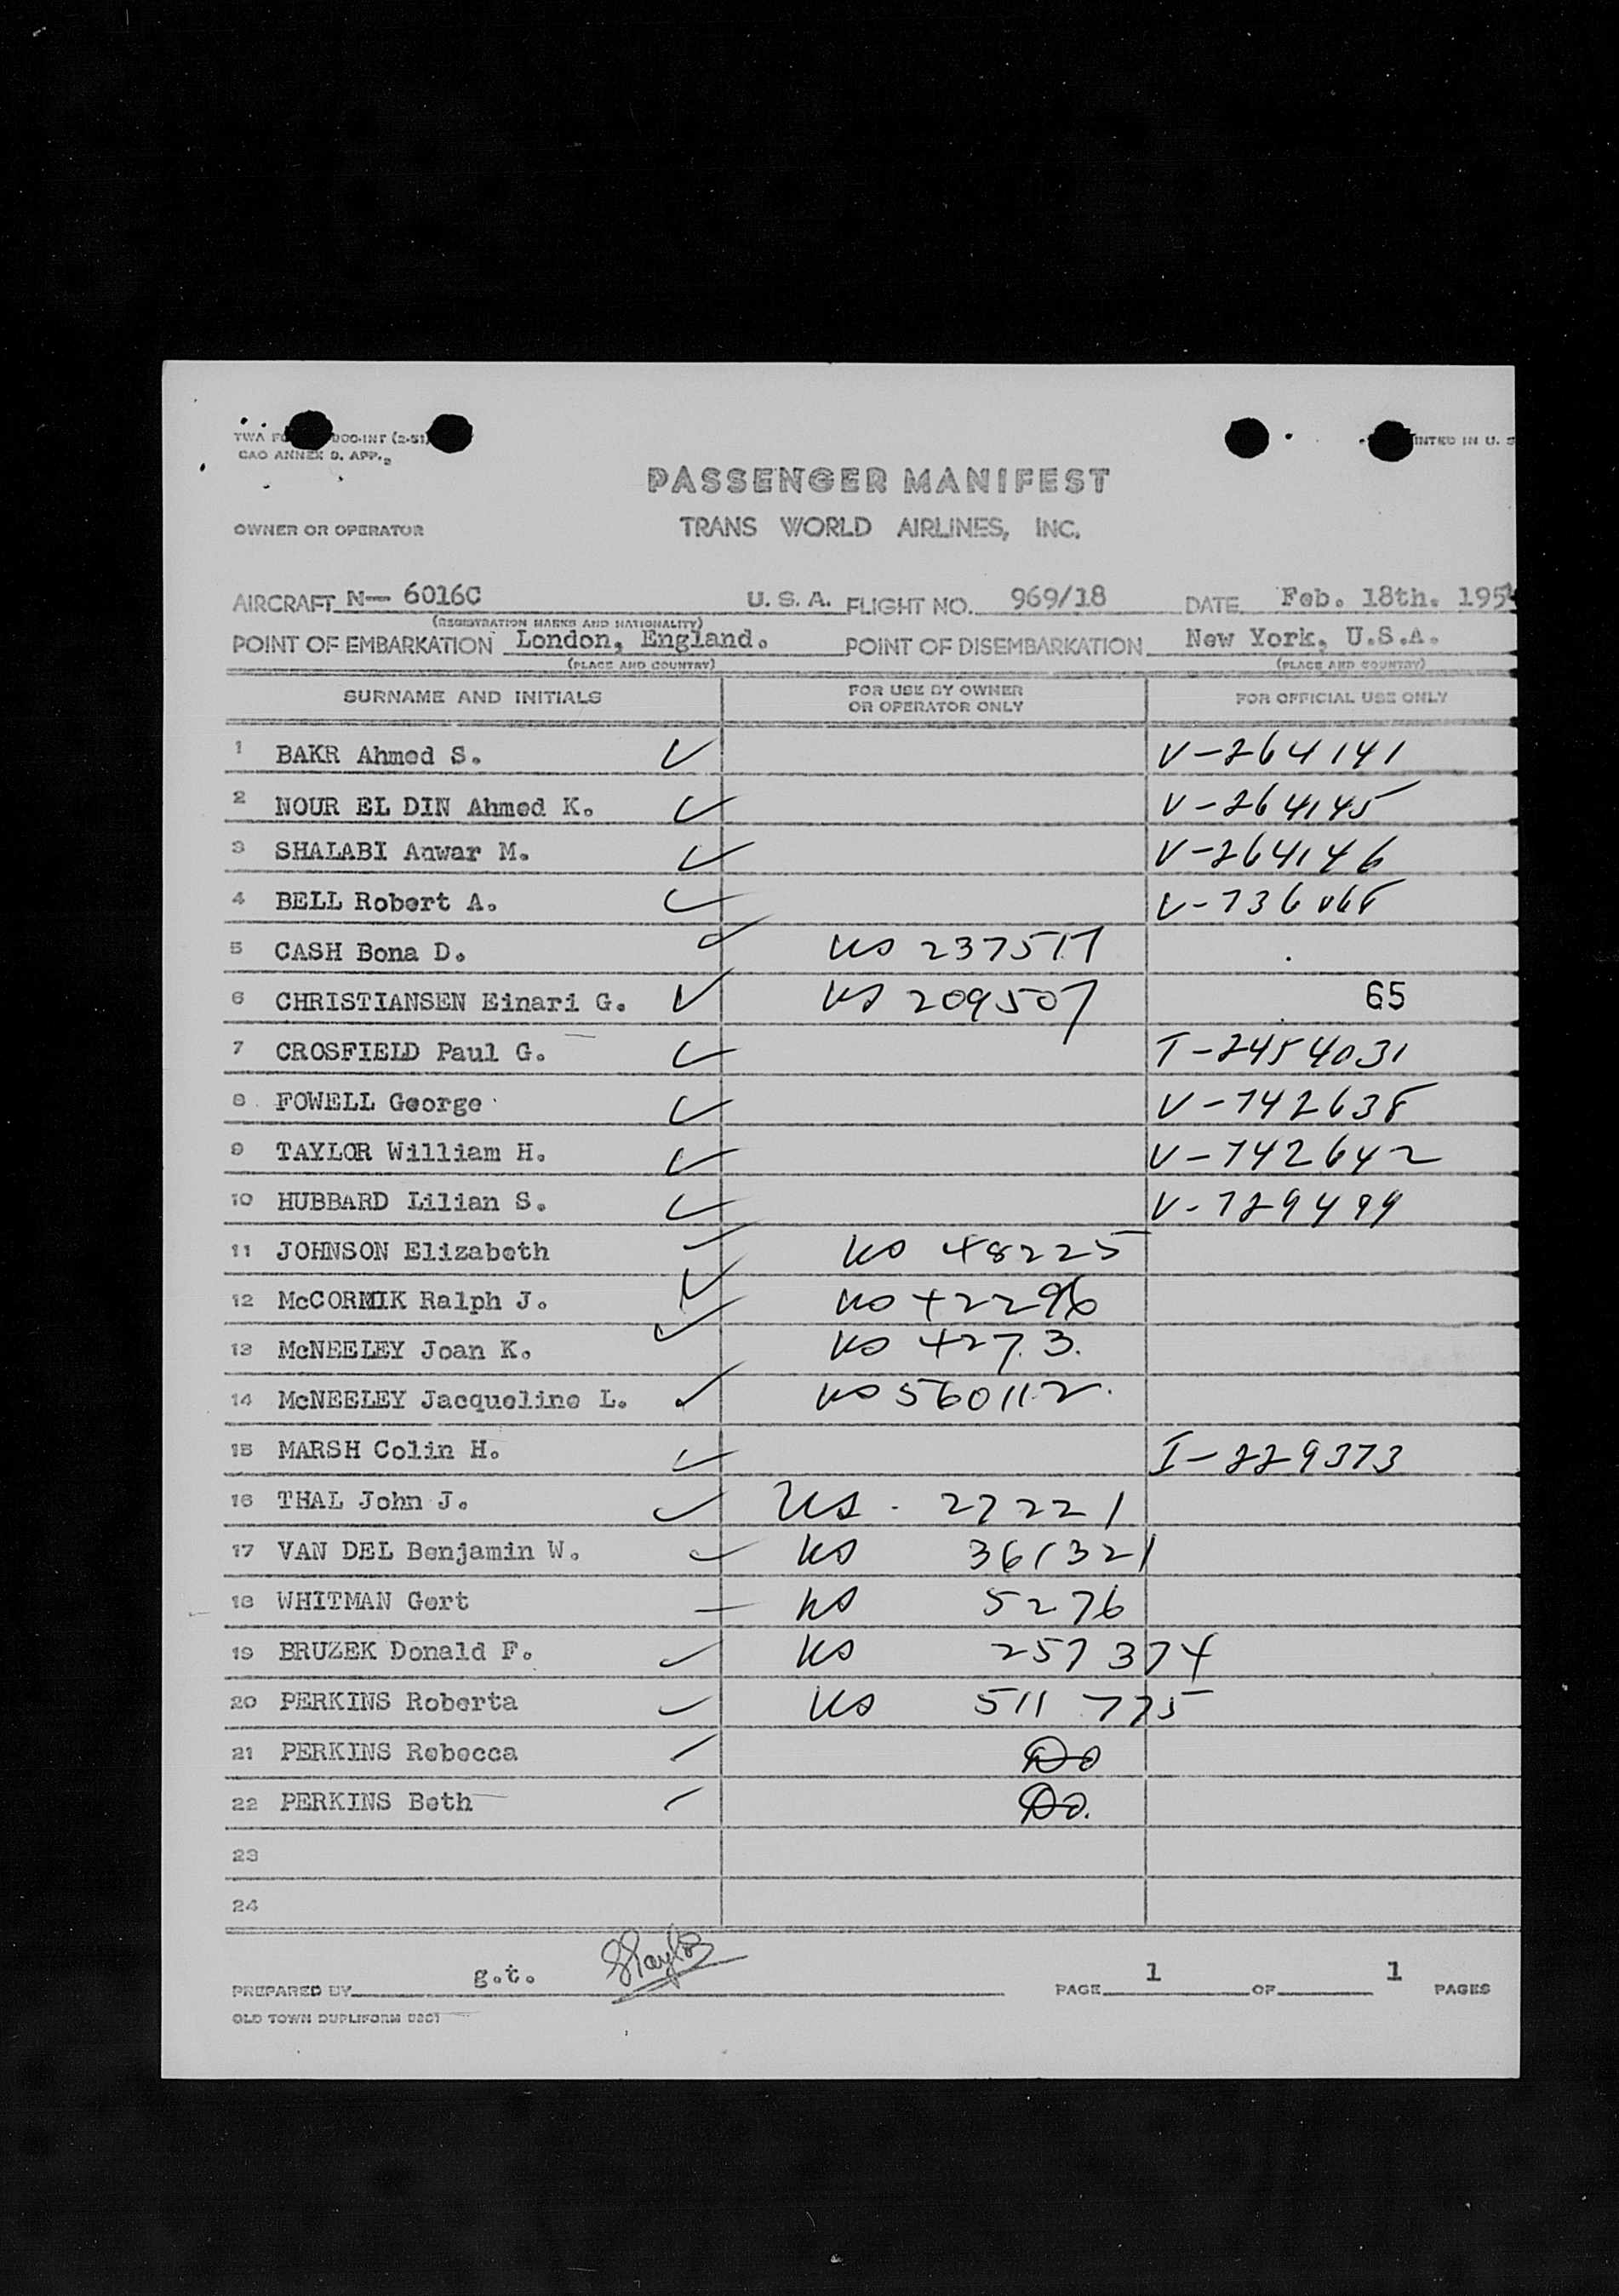 TWA DOC-INT (2-51)
CAO ANNEX 9. APP. 2
INTED IN U. S
PASSENGER MANIFEST
OWNER OR OPERATOR TRANS WORLD AIRLINES, INC.
AIRCRAFT N— 6016C U. S. A. FLIGHT NO. 969/18 DATE Feb. 18th. 195
(REGISTRATION MARKS AND NATIONALITY)
POINT OF EMBARKATION London, England. POINT OF DISEMBARKATION New York, U.S.A.
(PLACE AND COUNTRY) (PLACE AND COUNTRY)
SURNAME AND INITIALS FOR USE BY OWNER OR OPERATOR ONLY FOR OFFICIAL USE ONLY
1 BAKR Ahmed S. V-264141
2 NOUR EL DIN Ahmed K. V-264145
3 SHALABI Anwar M. V-264146
4 BELL Robert A.
5 CASH Bona D. US 237517
6 CHRISTIANSEN Einari G. US 209507 65
7 CROSFIELD Paul G. T-2454031
8 FOWELL George V-742638
9 TAYLOR William H. V-742642
10 HUBBARD Lilian S. V-729499
11 JOHNSON Elizabeth US 48225
12 McCORMIK Ralph J. US 42296
13 McNEELEY Joan K. US 427.3.
14 McNEELEY Jacqueline L. US 560112.
15 MARSH Colin H. I-229373
16 THAL John J. US. 27221
17 VAN DEL Benjamin W. US 361321
18 WHITMAN Gert US 5276
19 BRUZEK Donald F. US 257374
20 PERKINS Roberta US 511775
21 PERKINS Rebecca Do
22 PERKINS Beth Do.
23
24
PREPARED BY g.t. PAGE 1 OF 1 PAGES
OLD TOWN DUPLIFORM